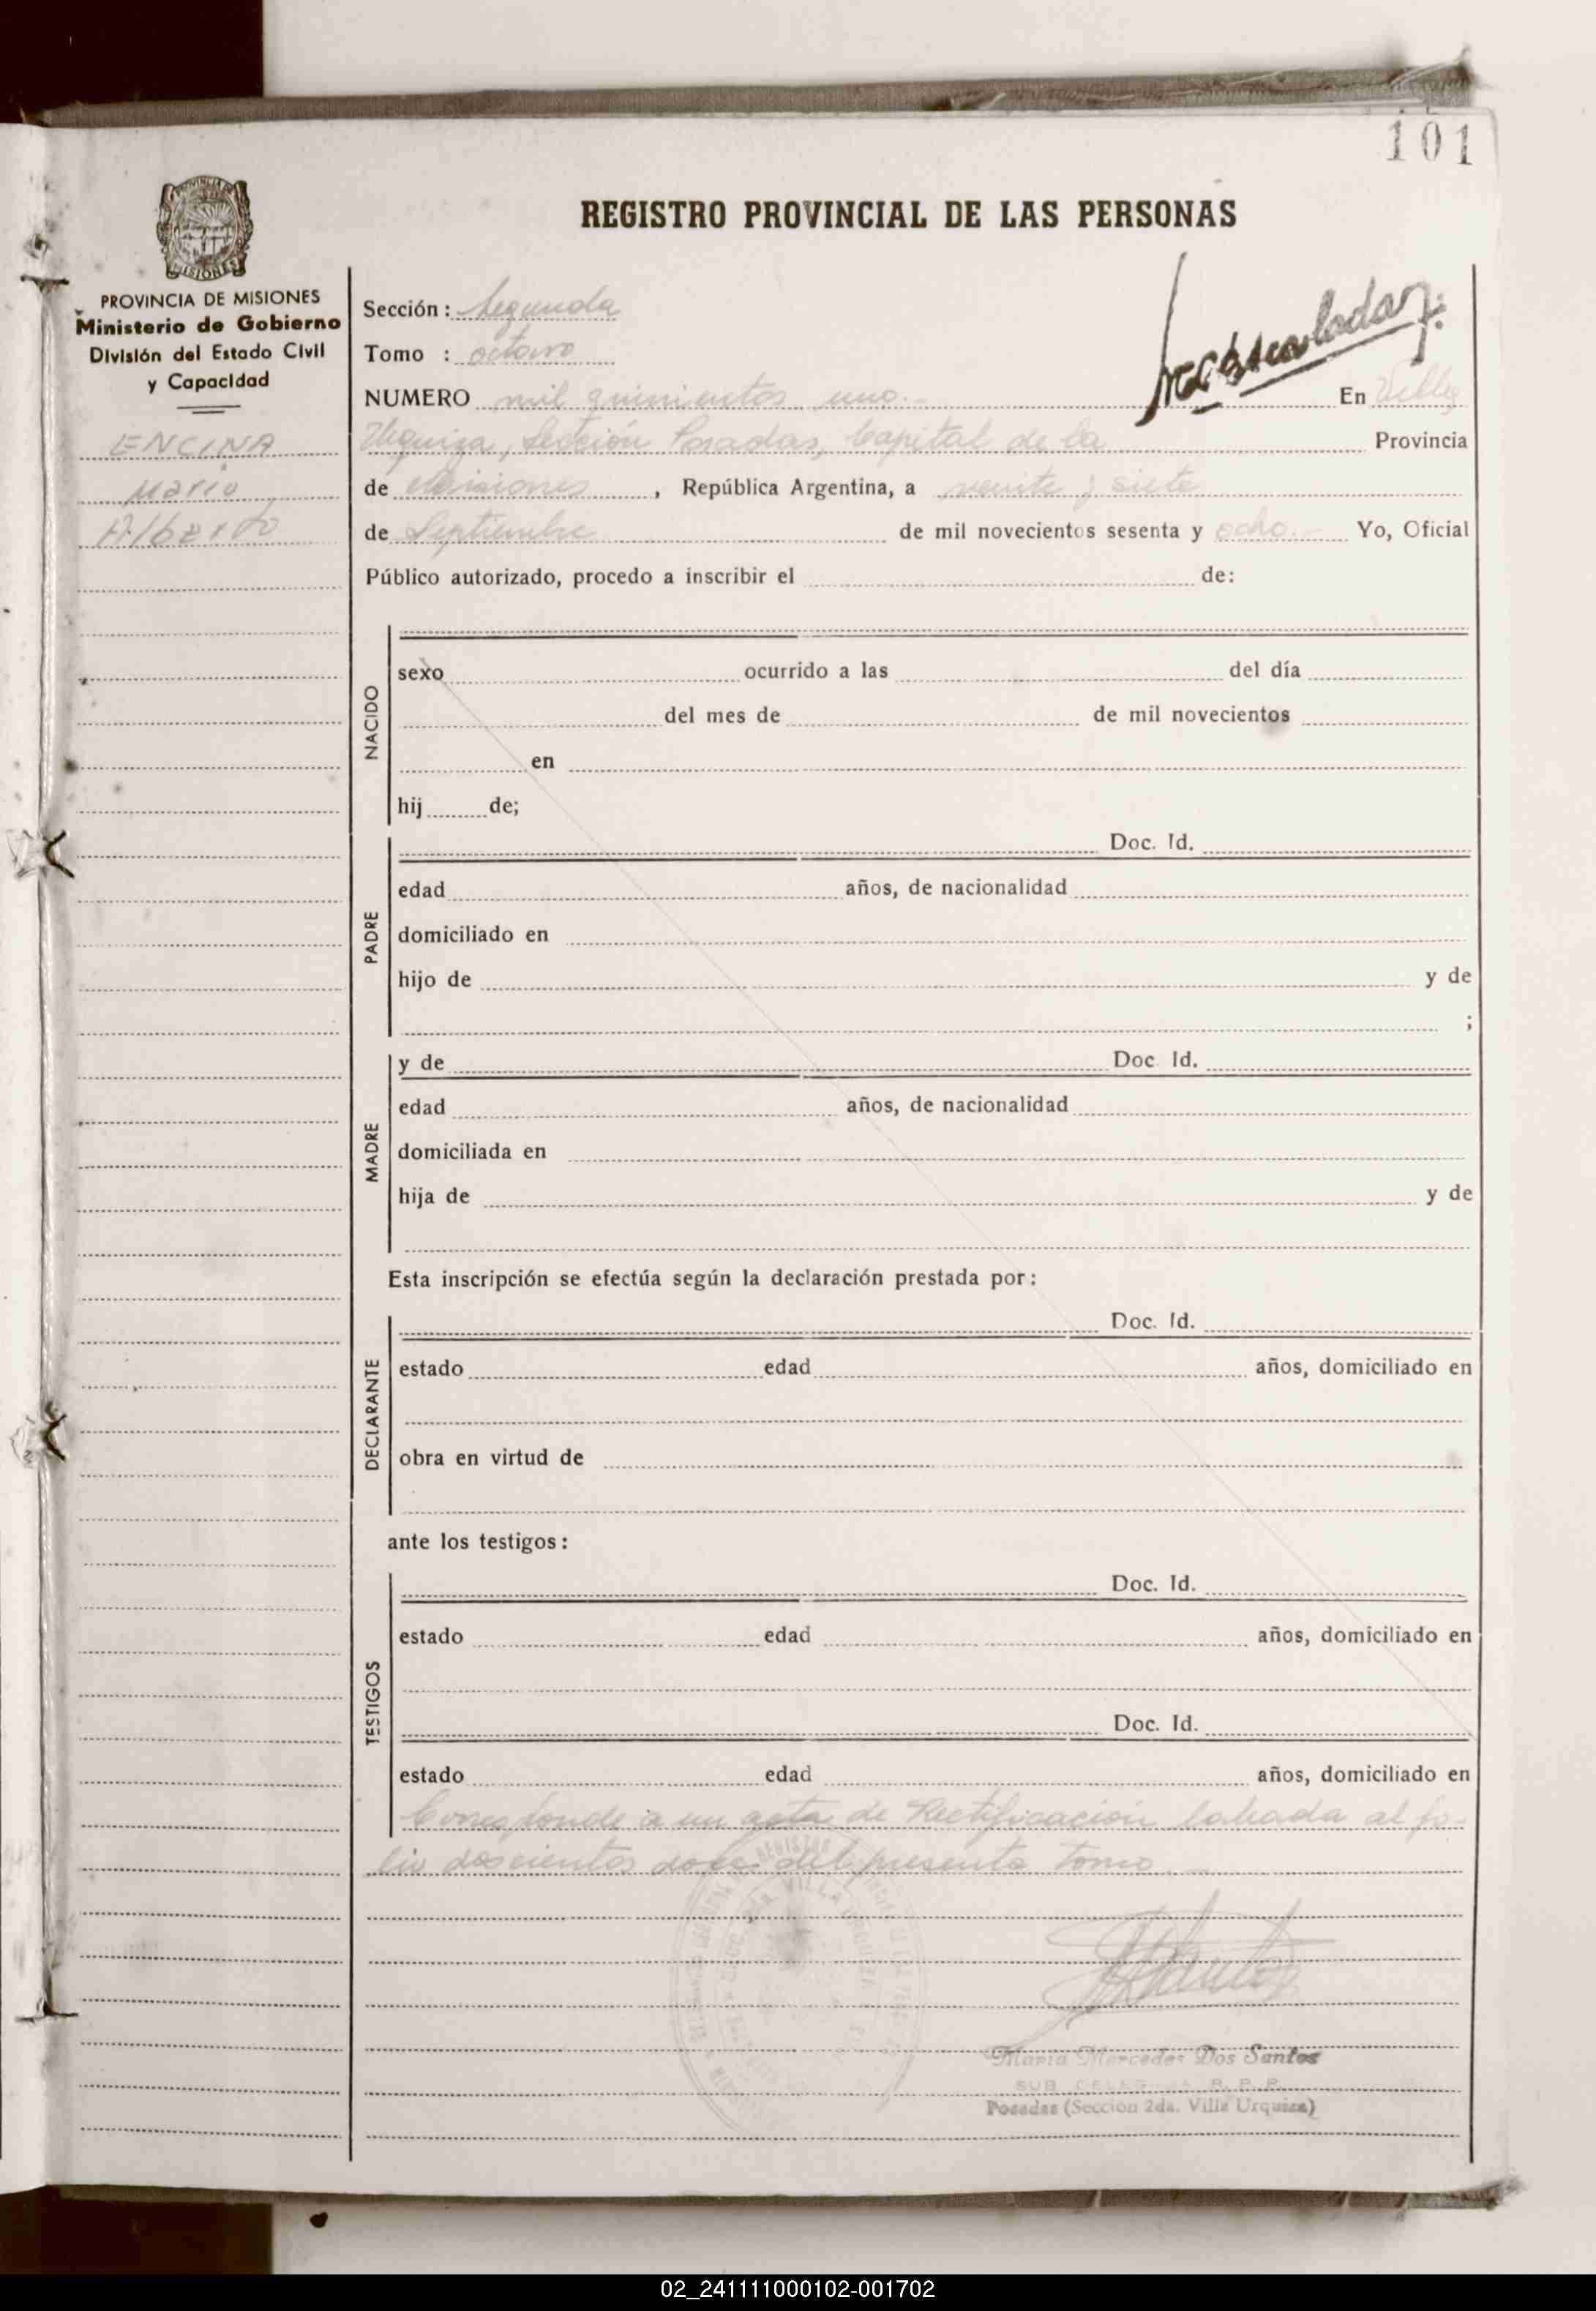 101
REGISTRO PROVINCIAL DE LAS PERSONAS
PROVINCIA DE MISIONES
Ministerio de Gobierno
División del Estado Civil
y Capacidad
ENCINA
Mario
Alberto
Sección: Segunda
Tomo : octavo
NUMERO mil quinientos uno.- En Villa
Urquiza, Sección Posadas, Capital de la Provincia
de Misiones, República Argentina, a veinte y siete
de Septiembre de mil novecientos sesenta y ocho.- Yo, Oficial
Público autorizado, procedo a inscribir el de:
NACIDO
sexo ocurrido a las del día
del mes de de mil novecientos
en
hij de;
PADRE
Doc. Id.
edad años, de nacionalidad
domiciliado en
hijo de y de
;
MADRE
y de Doc. Id.
edad años, de nacionalidad
domiciliada en
hija de y de
Esta inscripción se efectúa según la declaración prestada por:
DECLARANTE
Doc. Id.
estado edad años, domiciliado en
obra en virtud de
ante los testigos:
TESTIGOS
Doc. Id.
estado edad años, domiciliado en
Doc. Id.
estado edad años, domiciliado en
Corresponde a un acta de Rectificación labrada al fo-
lio doscientos doce del presente tomo.-
María Mercedes Dos Santos
SUB R.P.P.
Posadas (Sección 2da. Villa Urquiza)
02_241111000102-001702